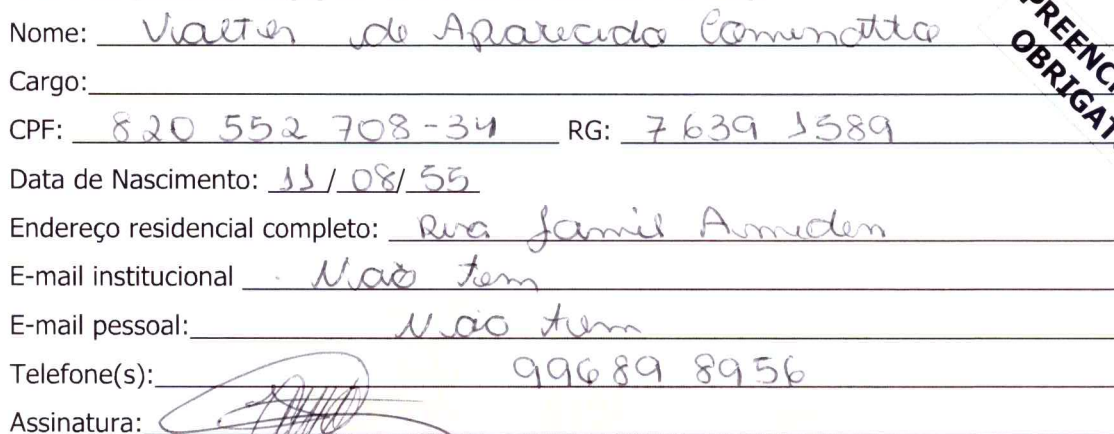 Nome: Valter de Aparecido Cominatto
PREENCH
OBRIGAT
Cargo:
CPF: 820 552 708-34 RG: 7 639 1589
Data de Nascimento: 11/08/55
Endereço residencial completo: Rua Jamil
E-mail institucional Não tem
E-mail pessoal: Não tem
Telefone(s): 99689 8956
Assinatura: